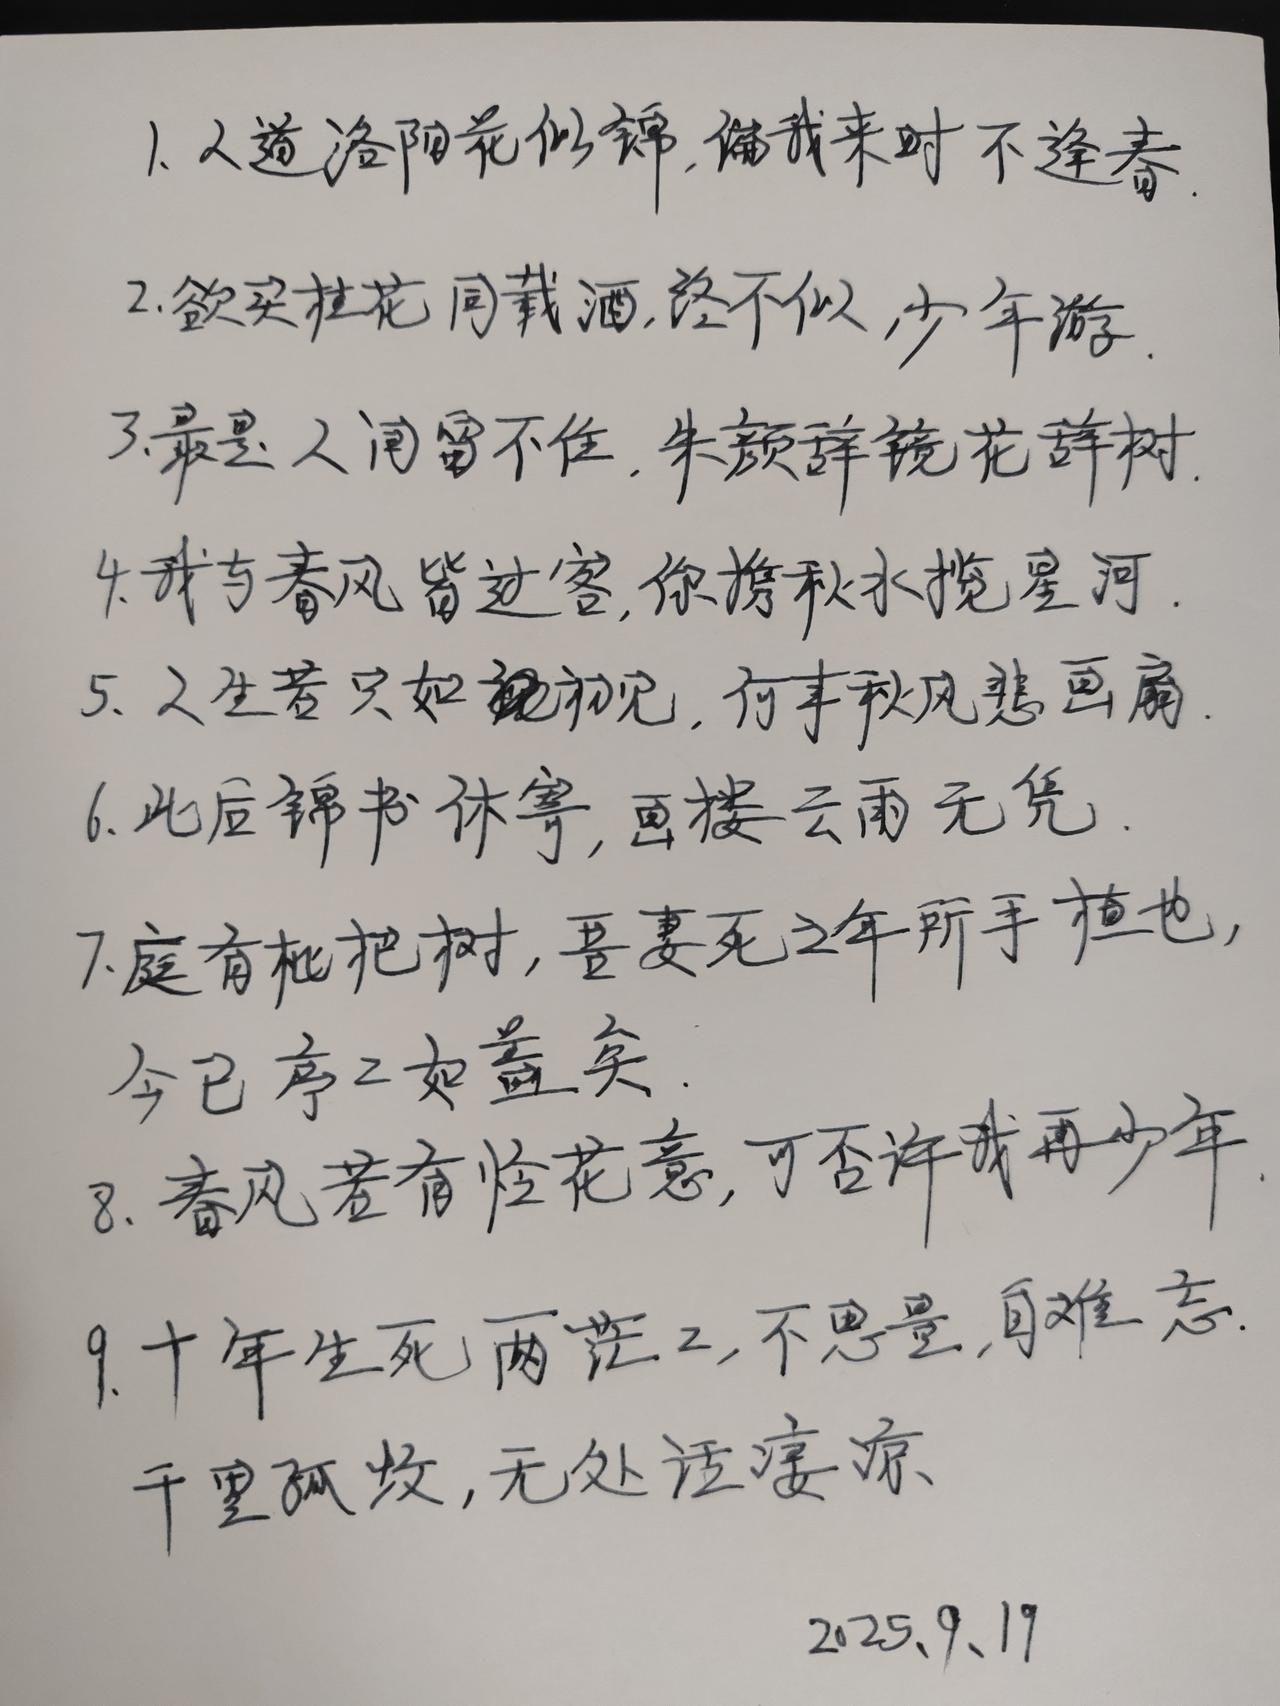 1. 人道洛阳花似锦,偏我来时不逢春.
2. 欲买桂花同载酒,终不似,少年游.
3. 最是人间留不住,朱颜辞镜花辞树.
4. 我与春风皆过客,你携秋水揽星河.
5. 人生若只如初见,何事秋风悲画扇.
6. 此后锦书休寄,画楼云雨无凭.
7. 庭有枇杷树,吾妻死之年所手植也,
今已亭二如盖矣.
8. 春风若有怜花意,可否许我再少年.
9. 十年生死两茫二,不思量,自难忘.
千里孤坟,无处话凄凉、
2025、9、19